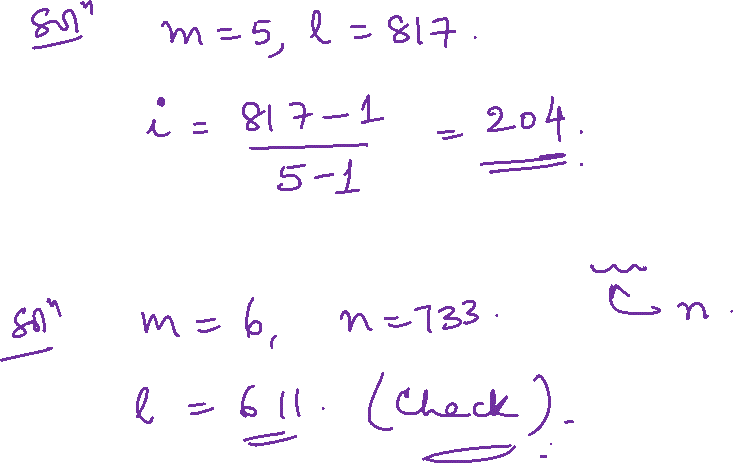 Solⁿ m = 5, l = 817.
i = 817-1 / 5-1 = 204.
Solⁿ m = 6, n = 733.
n.
l = 611. (Check).